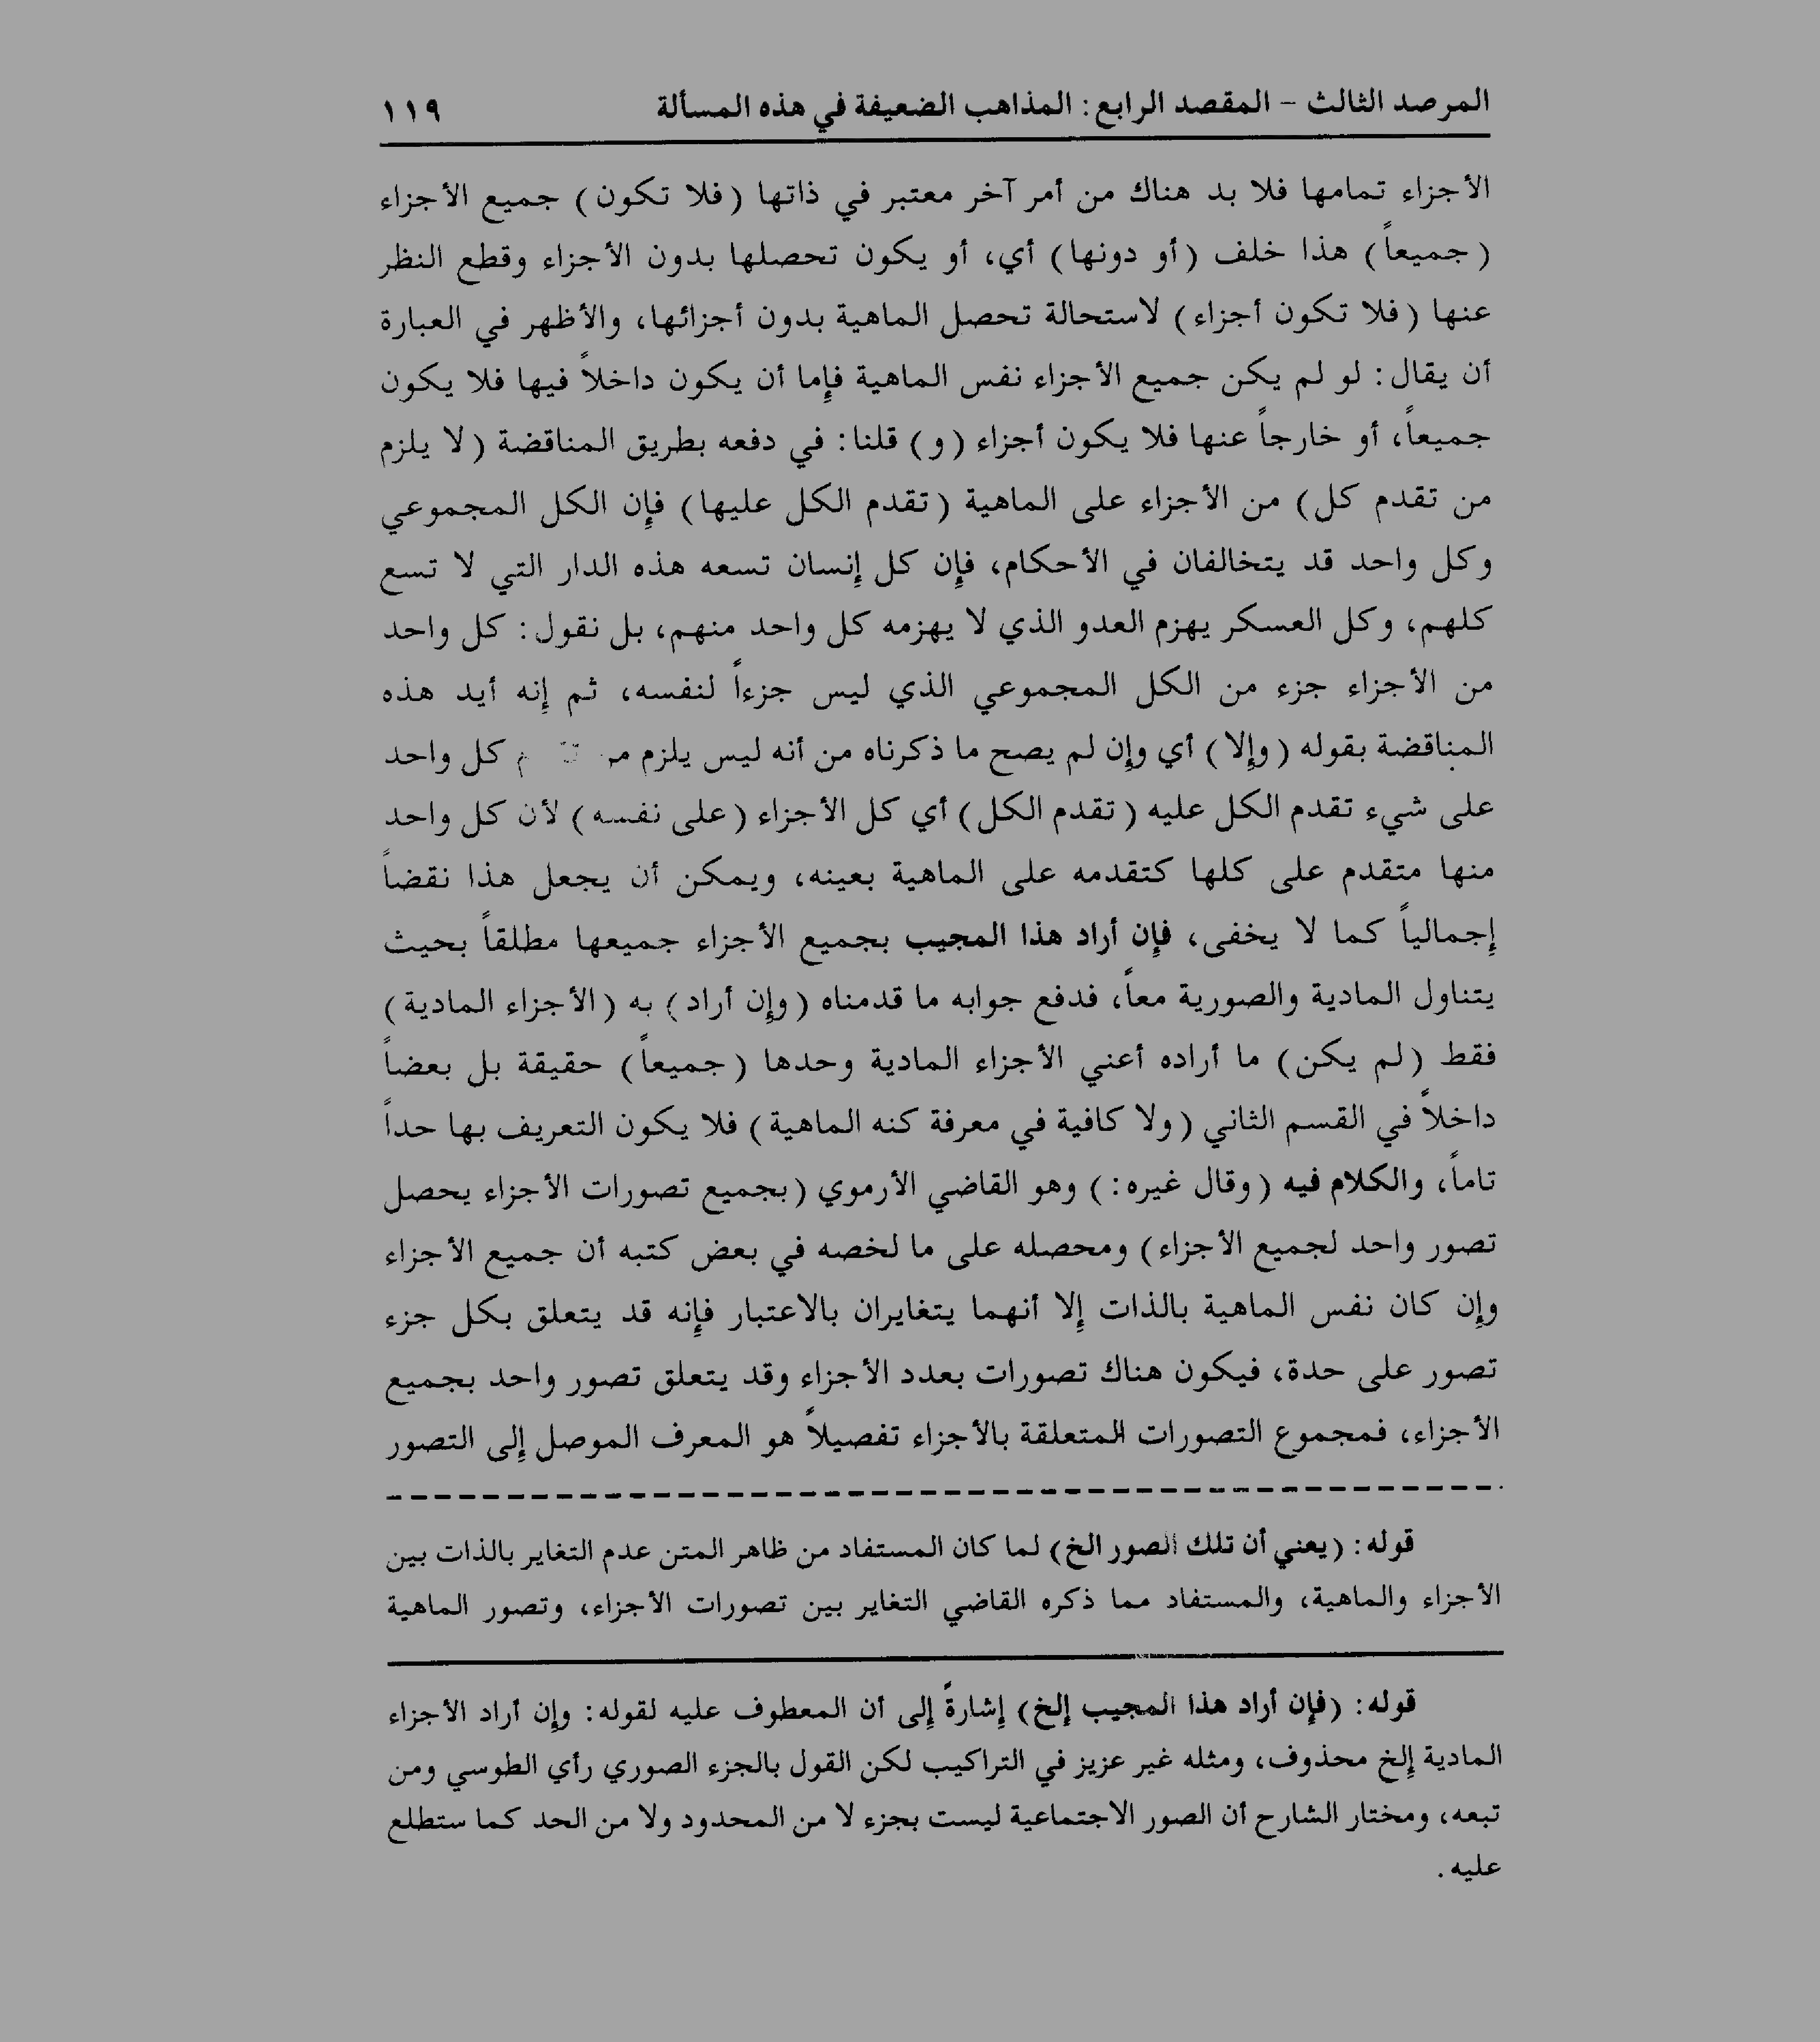 المرصد الثالث – المقصد الرابع: المذاهب الضعيفة في هذه المسألة ١١٩
الأجزاء تمامها فلا بد هناك من أمر آخر معتبر في ذاتها (فلا تكون) جميع الأجزاء
(جميعاً) هذا خلف (أو دونها) أي، أو يكون تحصلها بدون الأجزاء وقطع النظر
عنها (فلا تكون أجزاء) لاستحالة تحصل الماهية بدون أجزائها، والأظهر في العبارة
أن يقال: لو لم يكن جميع الأجزاء نفس الماهية فإما أن يكون داخلاً فيها فلا يكون
جميعاً، أو خارجاً عنها فلا يكون أجزاء (و) قلنا: في دفعه بطريق المناقضة (لا يلزم
من تقدم كل) من الأجزاء على الماهية (تقدم الكل عليها) فإن الكل المجموعي
وكل واحد قد يتخالفان في الأحكام، فإن كل إنسان تسعه هذه الدار التي لا تسع
كلهم، وكل العسكر يهزم العدو الذي لا يهزمه كل واحد منهم، بل نقول: كل واحد
من الأجزاء جزء من الكل المجموعي الذي ليس جزءاً لنفسه، ثم إنه أيد هذه
المناقضة بقوله (وإلا) أي وإن لم يصح ما ذكرناه من أنه ليس يلزم كل واحد
على شيء تقدم الكل عليه (تقدم الكل) أي كل الأجزاء (على نفسه) لأن كل واحد
منها متقدم على كلها كتقدمه على الماهية بعينه، ويمكن أن يجعل هذا نقضاً
إجمالياً كما لا يخفى، فإن أراد هذا المجيب بجميع الأجزاء جميعها مطلقاً بحيث
يتناول المادية والصورية معاً، فدفع جوابه ما قدمناه (وإن أراد) به (الأجزاء المادية)
فقط (لم يكن) ما أراده أعني الأجزاء المادية وحدها (جميعاً) حقيقة بل بعضاً
داخلاً في القسم الثاني (ولا كافية في معرفة كنه الماهية) فلا يكون التعريف بها حداً
تاماً، والكلام فيه (وقال غيره:) وهو القاضي الأرموي (بجميع تصورات الأجزاء يحصل
تصور واحد لجميع الأجزاء) ومحصله على ما لخصه في بعض كتبه أن جميع الأجزاء
وإن كان نفس الماهية بالذات إلا أنهما يتغايران بالاعتبار فإنه قد يتعلق بكل جزء
تصور على حدة، فيكون هناك تصورات بعدد الأجزاء وقد يتعلق تصور واحد بجميع
الأجزاء، فمجموع التصورات المتعلقة بالأجزاء تفصيلاً هو المعرف الموصل إلى التصور
قوله: (يعني أن تلك الصور الخ) لما كان المستفاد من ظاهر المتن عدم التغاير بالذات بين
الأجزاء والماهية، والمستفاد مما ذكره القاضي التغاير بين تصورات الأجزاء، وتصور الماهية
قوله: (فإن أراد هذا المجيب إلخ) إشارةً إلى أن المعطوف عليه لقوله: وإن أراد الأجزاء
المادية إلخ محذوف، ومثله غير عزيز في التراكيب لكن القول بالجزء الصوري رأي الطوسي ومن
تبعه، ومختار الشارح أن الصور الاجتماعية ليست بجزء لا من المحدود ولا من الحد كما ستطلع
عليه.